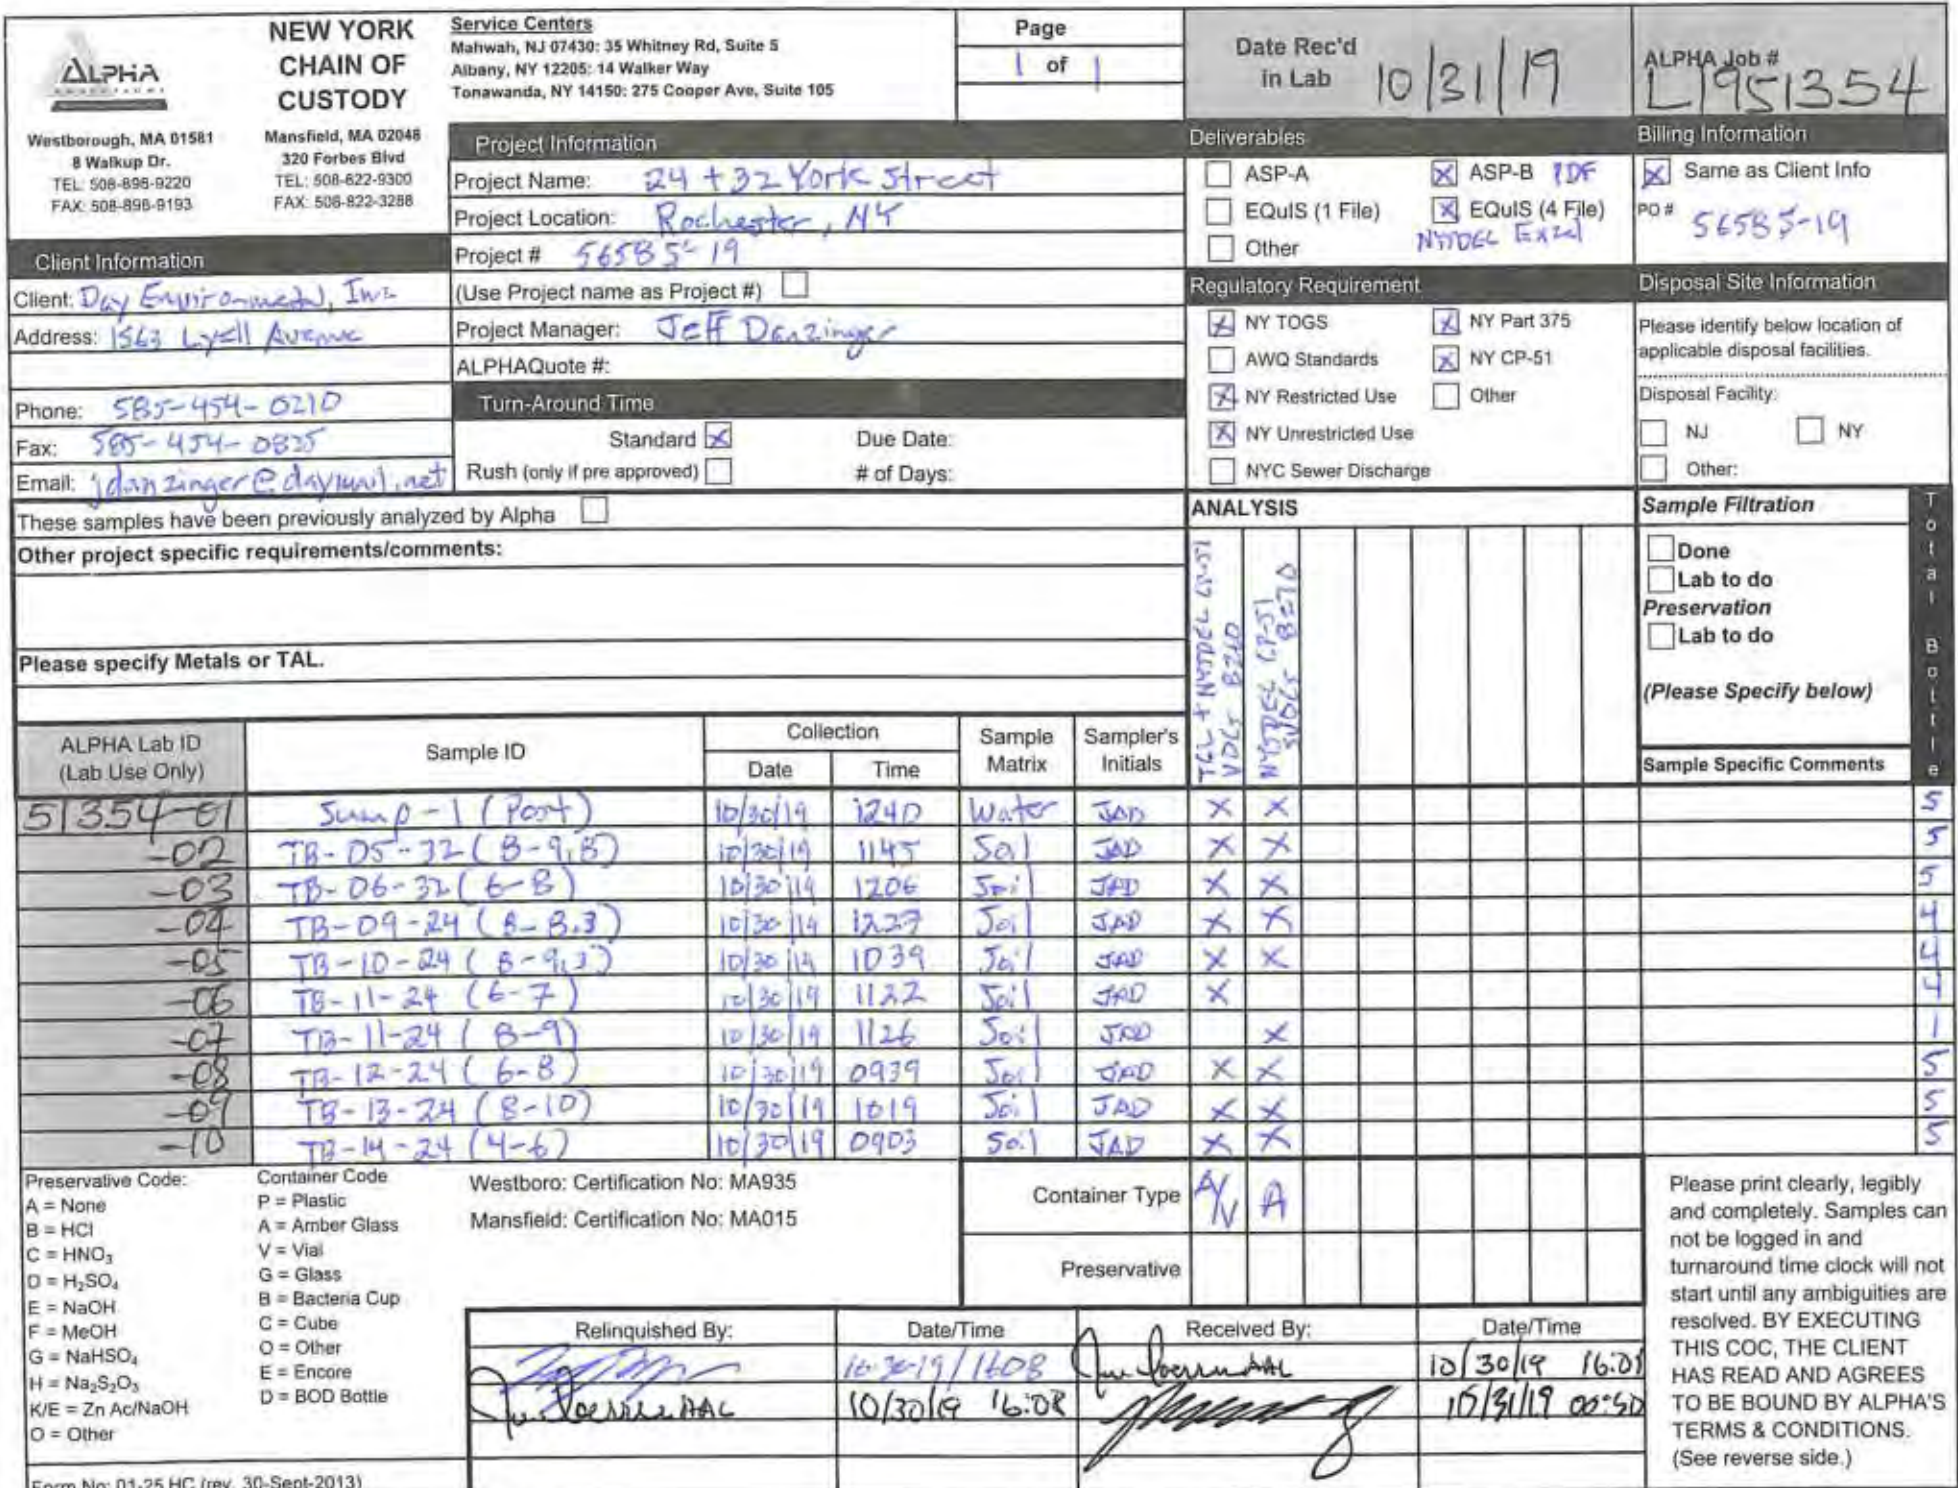 ALPHA
NEW YORK
CHAIN OF
CUSTODY
Westborough, MA 01581
8 Walkup Dr.
TEL: 508-898-9220
FAX: 508-898-9193
Mansfield, MA 02048
320 Forbes Blvd
TEL: 508-822-9300
FAX: 508-822-3288
Service Centers
Mahwah, NJ 07430: 35 Whitney Rd, Suite 5
Albany, NY 12205: 14 Walker Way
Tonawanda, NY 14150: 275 Cooper Ave, Suite 105
Page
1 of 1
Date Rec'd in Lab 10/31/19
ALPHA Job #
L1951354
Client Information
Client: Day Environmental, Inc
Address: 1563 Lyell Avenue
Phone: 585-454-0210
Fax: 585-454-0825
Email: jdanzinger@daymail.net
Project Information
Project Name: 24 + 32 York Street
Project Location: Rochester, NY
Project # 5658S-19
(Use Project name as Project #)
Project Manager: Jeff Danzinger
ALPHAQuote #:
Turn-Around Time
Standard X Due Date:
Rush (only if pre approved) # of Days:
Deliverables
ASP-A X ASP-B PDF
EQuIS (1 File) X EQuIS (4 File)
Other NYSDEC Excel
Regulatory Requirement
X NY TOGS X NY Part 375
AWQ Standards X NY CP-51
X NY Restricted Use Other
X NY Unrestricted Use
NYC Sewer Discharge
Billing Information
X Same as Client Info
PO # 5658S-19
Disposal Site Information
Please identify below location of
applicable disposal facilities.
Disposal Facility:
NJ NY
Other:
These samples have been previously analyzed by Alpha
Other project specific requirements/comments:
Please specify Metals or TAL.
ANALYSIS
TCL + NYSDEC CP-51
VOCs 8260
NYSDEC CP-51
SVOCs 8270
Sample Filtration
Done
Lab to do
Preservation
Lab to do
(Please Specify below)
Total Bottle
ALPHA Lab ID
(Lab Use Only)
Sample ID
Collection
Date Time
Sample
Matrix
Sampler's
Initials
Sample Specific Comments
51354-01 Sump-1 (Port) 10/30/19 1240 Water JAD X X 5
-02 TB-05-32 (8-9.8) 10/30/19 1145 Soil JAD X X 5
-03 TB-06-32 (6-8) 10/30/19 1206 Soil JAD X X 5
-04 TB-09-24 (8-8.3) 10/30/19 1227 Soil JAD X X 4
-05 TB-10-24 (8-9.3) 10/30/19 1039 Soil JAD X X 4
-06 TB-11-24 (6-7) 10/30/19 1122 Soil JAD X 4
-07 TB-11-24 (8-9) 10/30/19 1126 Soil JAD X 1
-08 TB-12-24 (6-8) 10/30/19 0939 Soil JAD X X 5
-09 TB-13-24 (8-10) 10/30/19 1019 Soil JAD X X 5
-10 TB-14-24 (4-6) 10/30/19 0903 Soil JAD X X 5
Preservative Code:
A = None
B = HCl
C = HNO₃
D = H₂SO₄
E = NaOH
F = MeOH
G = NaHSO₄
H = Na₂S₂O₃
K/E = Zn Ac/NaOH
O = Other
Container Code
P = Plastic
A = Amber Glass
V = Vial
G = Glass
B = Bacteria Cup
C = Cube
O = Other
E = Encore
D = BOD Bottle
Westboro: Certification No: MA935
Mansfield: Certification No: MA015
Container Type A/V A
Preservative
Relinquished By: Date/Time Received By: Date/Time
10-30-19/1608 AAL 10/30/19 16:08
AAL 10/30/19 16:08 10/31/19 00:50
Please print clearly, legibly
and completely. Samples can
not be logged in and
turnaround time clock will not
start until any ambiguities are
resolved. BY EXECUTING
THIS COC, THE CLIENT
HAS READ AND AGREES
TO BE BOUND BY ALPHA'S
TERMS & CONDITIONS.
(See reverse side.)
Form No: 01-25 HC (rev. 30-Sept-2013)